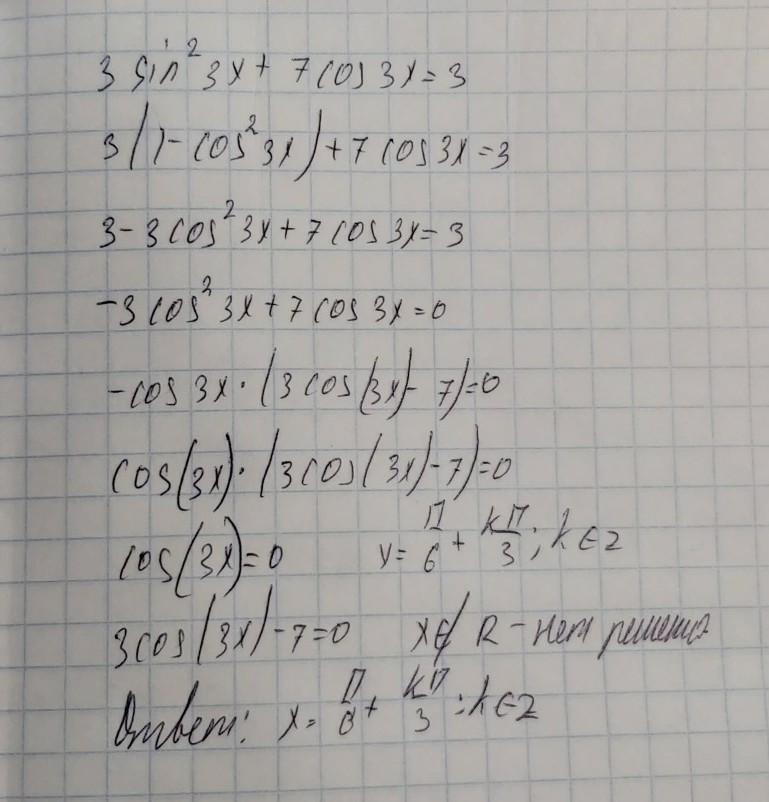 3 sin² 3x + 7 cos 3x = 3
3 (1 - cos² 3x) + 7 cos 3x = 3
3 - 3 cos² 3x + 7 cos 3x = 3
-3 cos² 3x + 7 cos 3x = 0
-cos 3x · (3 cos (3x) - 7) = 0
cos (3x) · (3 cos (3x) - 7) = 0
cos (3x) = 0 x = П/6 + kП/3 ; k ∈ Z
3 cos (3x) - 7 = 0 x ∉ R - нет решения
Ответ: x = П/6 + kП/3 ; k ∈ Z